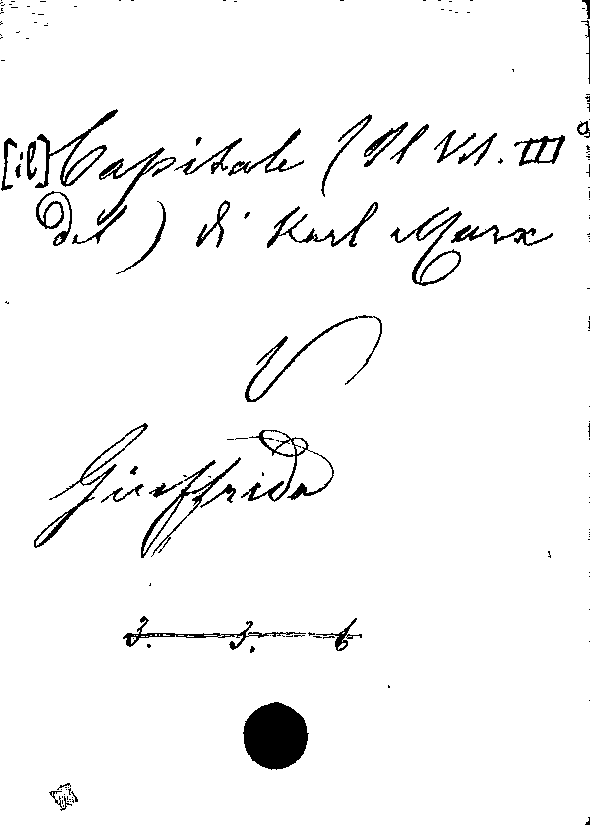 [il] Capitale (Il Vol. III
del) di Karl Marx
V
Giuffrida
3. 3. 6